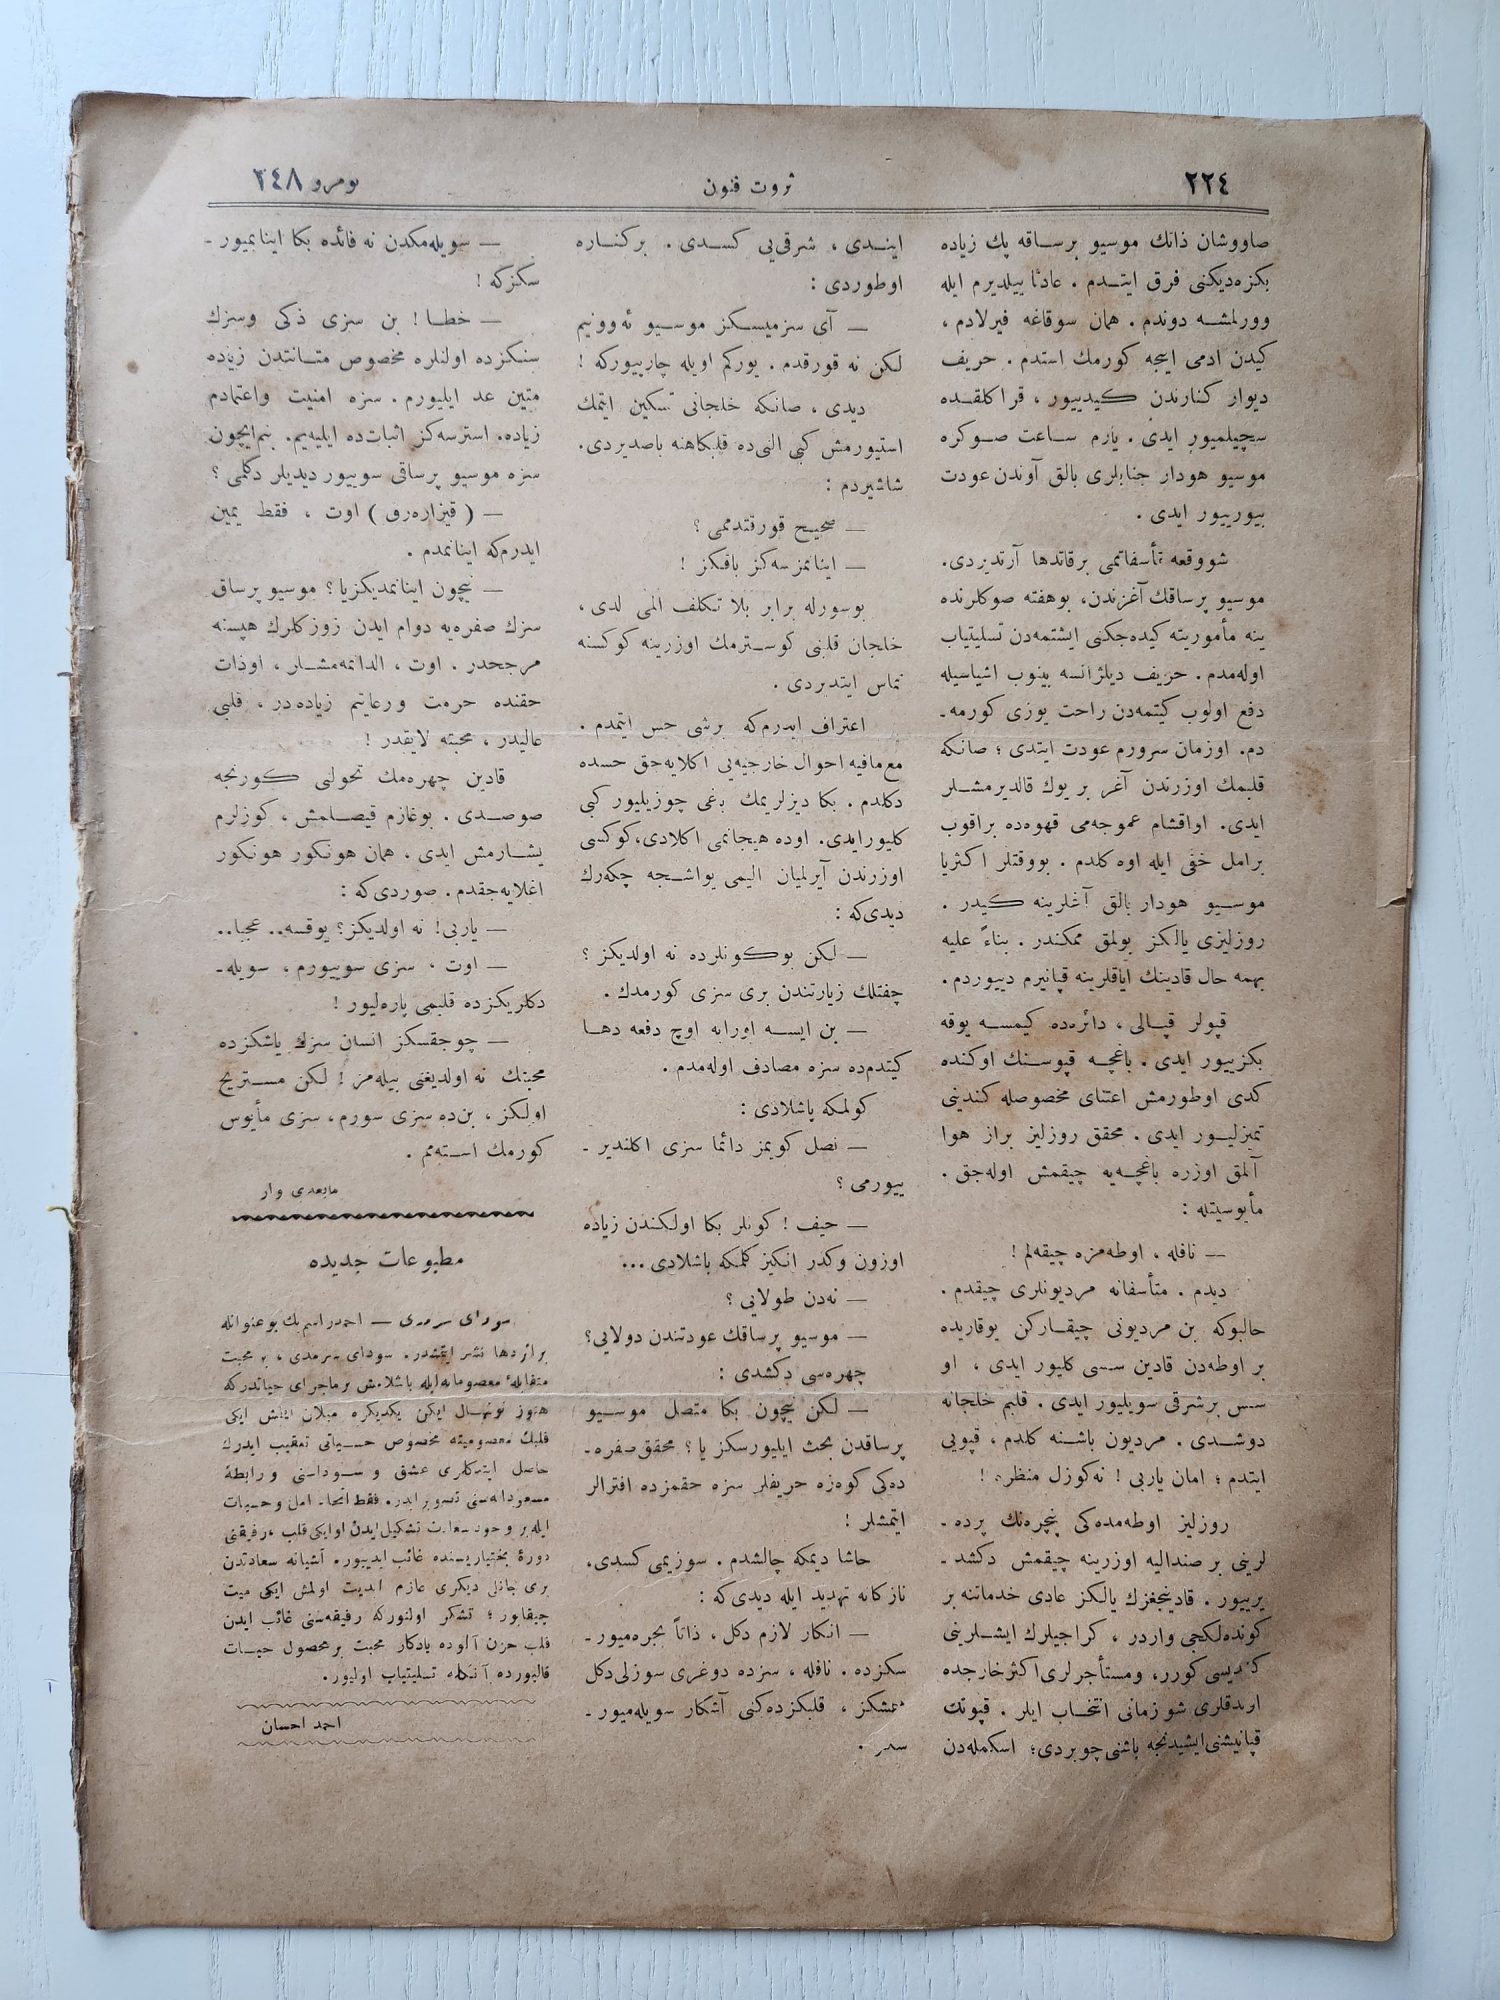 ٢٢٤
ثروت فنون
نومرو ٢٤٨
صاووشان ذاتك موسيو برساقه پك زياده
بكزه‌ديكنى فرق ايتدم . عادتا ييلديرم ايله
وورلمشه دوندم . همان سوقاغه فيرلادم ،
كيدن ادمى اييجه كورمك استدم . حريف
ديوار كنارندن كيدييور ، قراكلقده
سچيلميور ايدى . يارم ساعت صوكره
موسيو هودار جنابلرى بالق آوندن عودت
بيورييور ايدى .
شووقعه تأسفاتمى برقاتدها آرتديردى.
موسيو پرساقك آغزندن، بوهفته صوكلرنده
ينه مأموريته كيده‌جكنى ايشتمه‌دن تسليتياب
اوله‌مدم . حريف ديلژانسه بينوب اشياسيله
دفع اولوب كيتمه‌دن راحت يوزى كورمه‌ـ
دم. اوزمان سرورم عودت ايتدى ؛ صانكه
قلبمك اوزرندن آغر بر يوك قالديرمشلر
ايدى. اواقشام عموجه‌مى قهوه‌ده براقوب
برامل خفى ايله اوه كلدم . بووقتلر اكثريا
موسيو هودار بالق آغلرينه كيدر .
روزليزى يالكز بولمق ممكندر . بناءً عليه
بهمه حال قادينك اياقلرينه قپانيرم دييوردم.
قپولر قپالى ، دائره‌ده كيمسه يوقه
بكزييور ايدى . باغچه قپوسنك اوكنده
كدى اوطورمش اعتناى مخصوصله كندينى
تميزليور ايدى . محقق روزليز براز هوا
آلمق اوزره باغچه‌يه چيقمش اوله‌جق .
مأيوسيتله :
— نافله ، اوطه‌مزه چيقه‌لم !
ديدم . متأسفانه مرديونلرى چيقدم .
حالبوكه بن مرديونى چيقاركن يوقاريده
بر اوطه‌دن قادين سسى كليور ايدى ، او
سس برشرقى سويليور ايدى . قلبم خلجانه
دوشدى . مرديون باشنه كلدم ، قپويى
ايتدم ؛ امان ياربى ! نه‌كوزل منظره !
روزليز اوطه‌مده‌كى پنچره‌نك پرده‌ـ
لرينى بر صنداليه اوزرينه چيقمش دكشدـ
يرييور . قادينجغزك يالكز عادى خدماتنه بر
كونده‌لكجى واردر ، كراجيلرك ايشلرينى
كنديسى كورر، ومستأجرلرى اكثر خارجده
اوندقلرى شو زمانى انتخاب ايلر . قپونك
قپانيشنى ايشيدنجه باشنى چويردى؛ اسكمله‌دن
ايندى ، شرقى‌يى كسدى . بركناره
اوطوردى :
— آى سزميسكز موسيو ئه‌وونيم
لكن نه قورقدم . يوركم اويله چارپيوركه !
ديدى ، صانكه خلجانى تسكين ايتمك
استيورمش كبى النى‌ده قلبكاهنه باصديردى.
شاشيردم :
— صحيح قورقتدممى ؟
— اينانمزسه‌كز باقكز !
بوسوزله برابر بلا تكلف المى الدى ،
خلجان قلبنى كوسترمك اوزرينه كوكسنه
تماس ايتديردى .
اعتراف ايدرم‌كه برشى حس ايتمدم .
مع‌مافيه احوال خارجيه‌يى اكلايه‌جق حسده
دكلدم . بكا ديزلريمك باغى چوزيليور كبى
كليورايدى. اوده هيجانمى اكلادى، كوكسى
اوزرندن آيرلميان اليمى يواشجه چكه‌رك
ديدى‌كه :
— لكن بوكونلرده نه اولديكز ؟
چفتلك زيارتندن برى سزى كورمدك .
— بن ايسه اورايه اوچ دفعه دها
كيتدم‌ده سزه مصادف اوله‌مدم .
كولمكه باشلادى :
— نصل كويمز دائما سزى اكلنديرـ
ييورمى ؟
— حيف ! كونلر بكا اولكندن زياده
اوزون وكدر انكيز كلمكه باشلادى ...
— نه‌دن طولايى ؟
— موسيو پرساقك عودتندن دولايى؟
چهره‌سى دكشدى :
— لكن نيچون بكا متصل موسيو
پرساقدن بحث ايليورسكز يا ؟ محقق صفره‌ـ
ده‌كى كوه‌زه حريفلر سزه حقمزده افترالر
ايتمشلر !
حاشا ديمكه چالشدم . سوزيمى كسدى،
نازكانه تهديد ايله ديدى‌كه :
— انكار لازم دكل ، ذاتاً بجره‌ميورـ
سكزده . نافله ، سزده دوغرى سوزلى دكل
ـمشكز ، قلبكزده‌كنى آشكار سويله‌ميورـ
سكز .
— سويله‌مكدن نه فائده بكا اينانميورـ
سكزكه !
— خطا ! بن سزى ذكى وسزك
سنكزده اولنلره مخصوص متانتدن زياده
متين عد ايليورم . سزه امنيت واعتمادم
زياده. استرسه‌كز اثبات‌ده ايليه‌يم. بنم‌ايچون
سزه موسيو پرساقى سوييور ديديلر دكلمى ؟
— ( قيزاره‌رق ) اوت ، فقط يمين
ايدرم‌كه اينانمدم .
— نيچون اينانمديكزيا ؟ موسيو پرساق
سزك صفره‌يه دوام ايدن زوزكلرك هپسنه
مرجحدر . اوت ، الداتمه‌مشلر ، اوذات
حقنده حرمت ورعايتم زياده‌در ، قلبى
عاليدر ، محبته لايقدر !
قادين چهره‌مك تحولنى كورنجه
صوصدى . بوغازم قيصلمش ، كوزلرم
يشارمش ايدى ، همان هونكور هونكور
اغلايه‌جقدم . صوردى‌كه :
— ياربى ! نه اولديكز ؟ يوقسه.. عجبا..
— اوت ، سزى سوييورم ، سويله‌ـ
دكلريكزده قلبمى پاره‌ليور !
— چوجقسكز انسان سزك ياشكزده
محبتك نه اولديغنى بيله‌مز ! لكن مستريح
اولكز ، بن‌ده سزى سورم ، سزى مأيوس
كورمك استه‌مم .
مابعدى وار
مطبوعات جديده
سوداى سرمدى — احمدراسم بك بوعنوانله
براثردها نشر ايتمشدر. سوداى سرمدى ، بر محبت
متقابلهٔ معصومانه ايله باشلامش برماجراى حياتدركه
هنوز نونهال ايكن يكديكره ميلان ايتمش ايكى
قلبك معصوميته مخصوص حسياتى تعقيب ايدرك
حاصل ايتدكلرى عشق و سوداسنى و رابطهٔ
مسعودانه‌سنى تصوير ايدر. فقط اتحاد امل وحسيات
ايله بر وجود سعادت تشكيل ايدن اوايكى قلب ، رفيقنى
دورهٔ بختياريسنده غائب ايدييور. آشيانه سعادتدن
برى جانلى ديكرى عازم ابديت اولمش ايكى ميت
چيقايور ؛ تشكر اولنوركه رفيقه‌سنى غائب ايدن
قلب حزن آلوده يادكار محبت بر محصول حيات
قالیورده آنكله تسليتياب اولیور.
احمد احسان